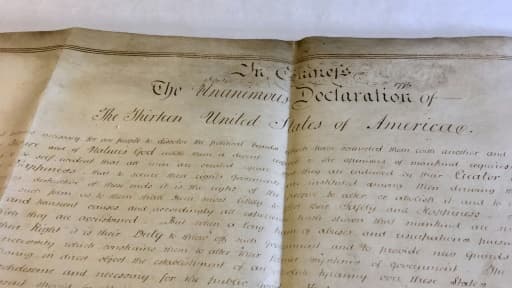 In Congress
1776
The Unanimous Declaration of —
The Thirteen United States of America.
necessary for one people to dissolve the political bands which have connected them with another and
and of Natures God entitle them a decent respect to the opinions of mankind requires
to be self evident that all men are created equal they are endowed by their Creator
Happiness that to secure these rights governments are instituted among Men deriving
destructive of these ends it is the right of the to alter or abolish it and to
such form as to them shall seem most likely to effect their Safety and Happiness
and transient causes and accordingly all experience hath shewn that mankind are
which they are accustomed But when a long train of abuses and usurpations
their Right it is their Duty to throw off such government and to provide new guards
necessity which constrains them to alter their former systems of government The
having in direct object the establishment of an absolute tyranny over these States
wholesome and necessary for the public